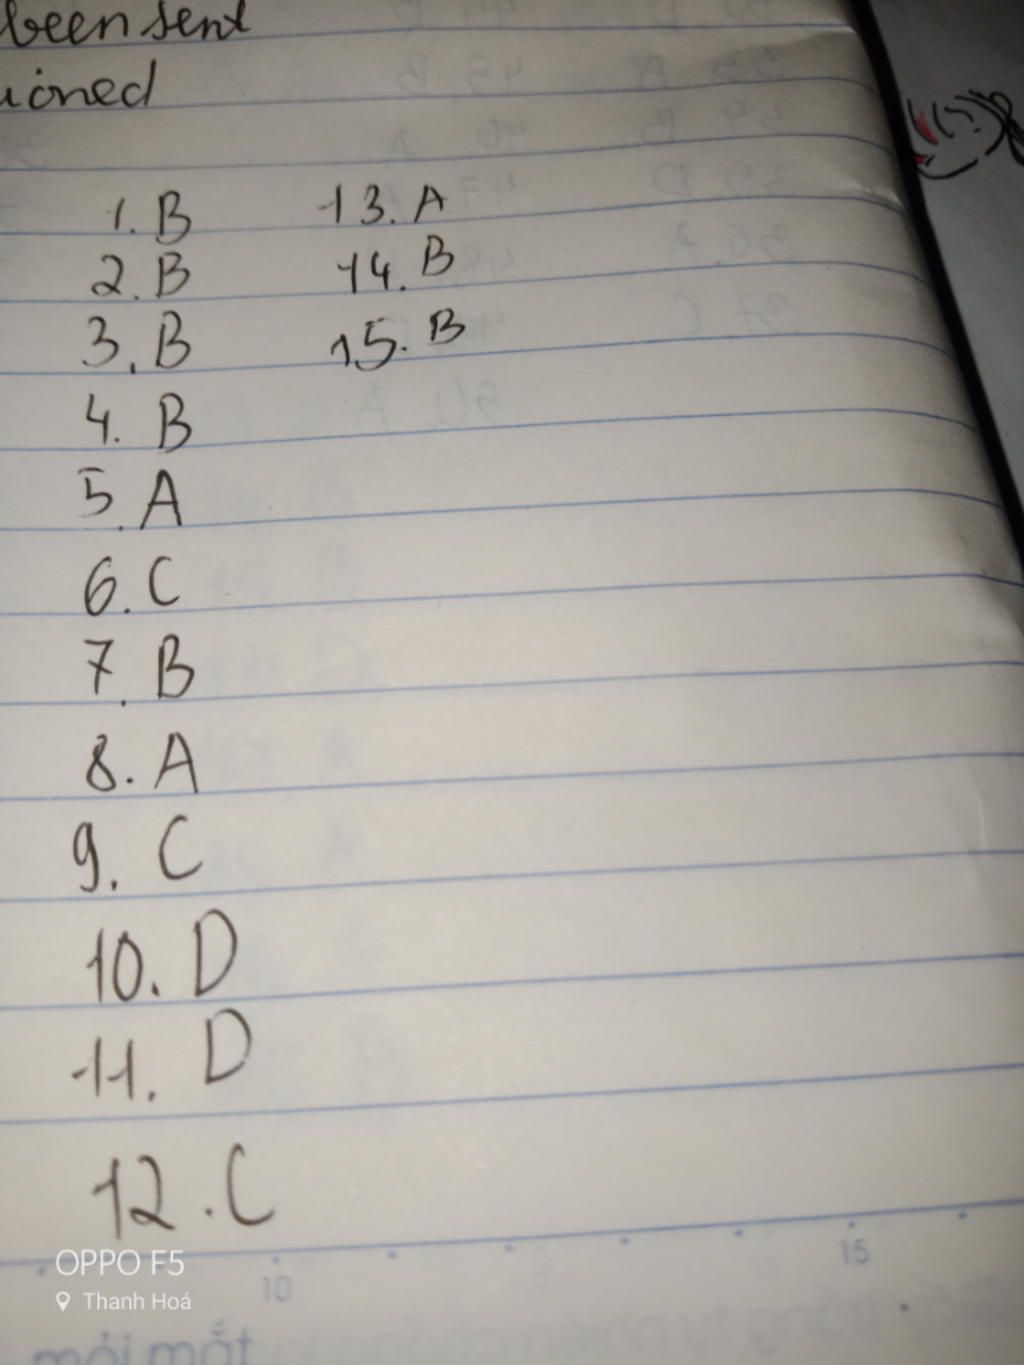 been sent
ioned
1. B
2. B
3. B
4. B
5. A
6. C
7. B
8. A
9. C
10. D
11. D
12. C
13. A
14. B
15. B
OPPO F5
Thanh Hoá
10
15
mỏi mắt